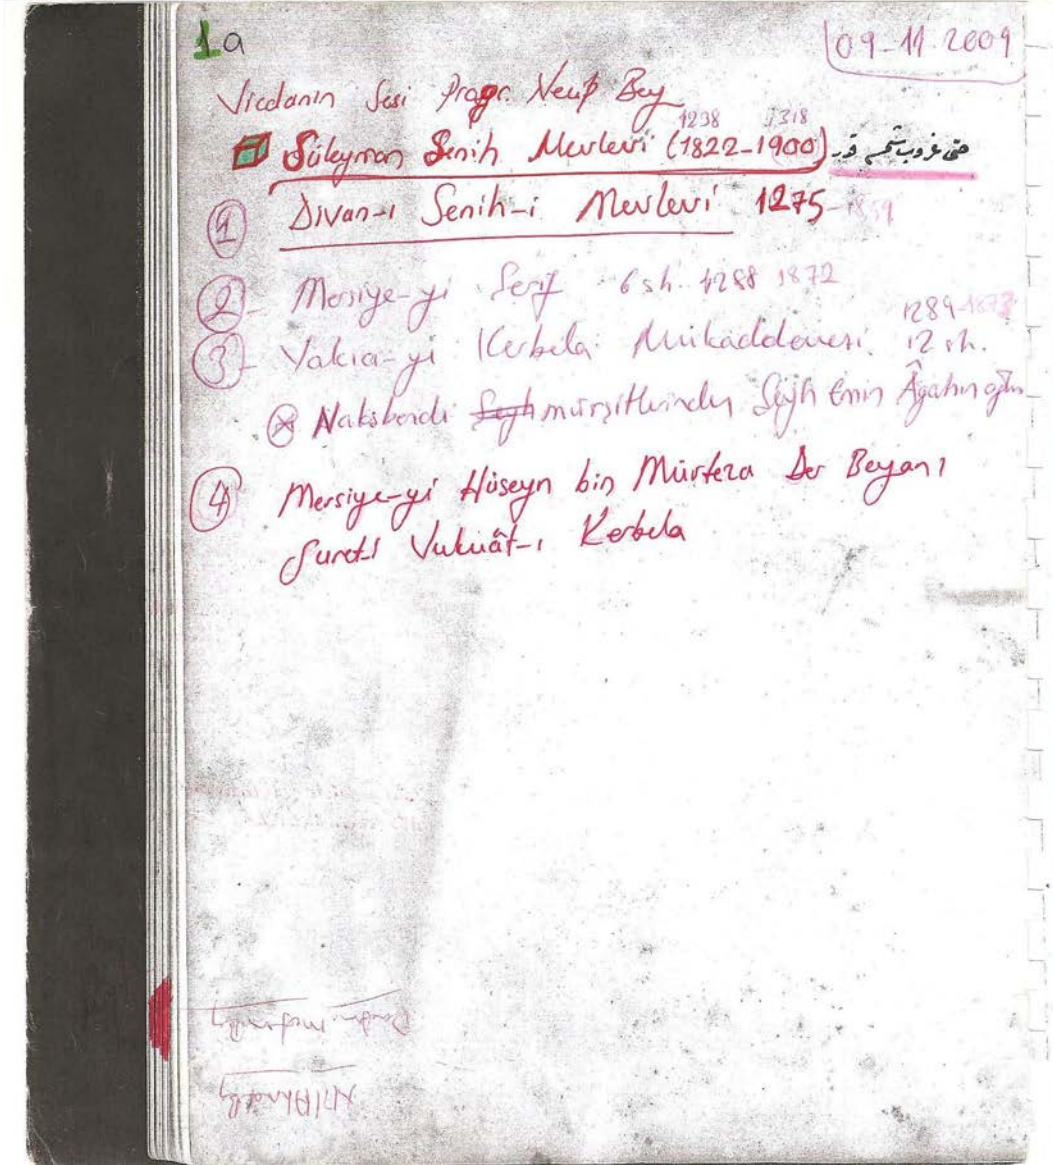 1a
09-11-2009
Vicdanın Sesi Progr. Necip Bey
1238 1318
Süleyman Senih Mevlevi (1822-1900) حتى غروب شمس
① Divan-ı Senih-i Mevlevi 1275-1859
② - Mersiye-yi Şerif 6 sh. 1288 1872
1289-1873
③ - Vakıa-yi Kerbela Mukaddemesi. 12 sh.
Nakşbendi Şeyh mürşitlerinden Şeyh Emin Âgahın oğlu
④ Mersiye-yi Hüseyn bin Mürteza Der Beyanı
Suret-i Vukuât-ı Kerbela